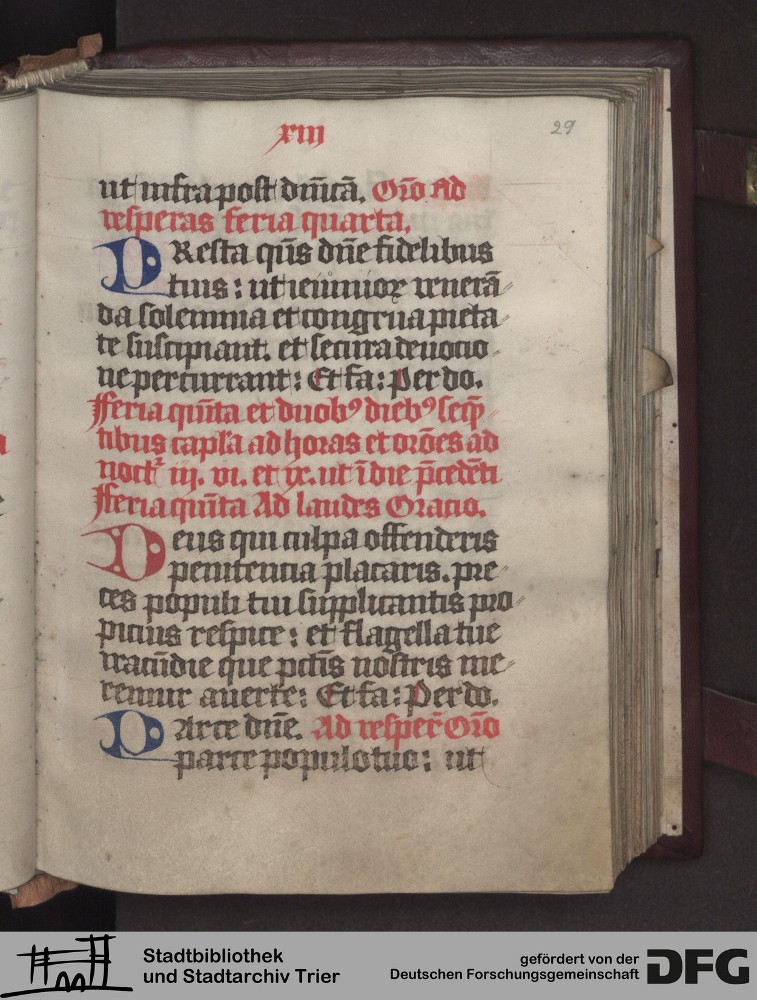 xiii
29
ut infra post dn̄icā. Or̄o ad
vesperas feria quarta.
PResta qūs dn̄e fidelibus
tuis : ut ieiunioꝝ venerā
da solemnia et congrua pieta
te suscipiant. et secura deuocio
ne percurrant : Et fa : Per do.
fferia quīta et duobꝰ diebꝰ seq̄
tibus capl'a ad horas et orōes ad
noct' iij. vi. et ix. ut ī die p̄cedēti
fferia quīta Ad laudes Oracio.
Deus qui culpa offenderis
penitencia placaris. pre
ces populi tui supplicantis pro
picius respice : et flagella tue
iracūdie que pctīs nostris me
remur auerte : Et fa : Per do.
Parce dn̄e. Ad vesper̄ Or̄o
parce populo tuo : ut
Stadtbibliothek
und Stadtarchiv Trier
gefördert von der
Deutschen Forschungsgemeinschaft
DFG